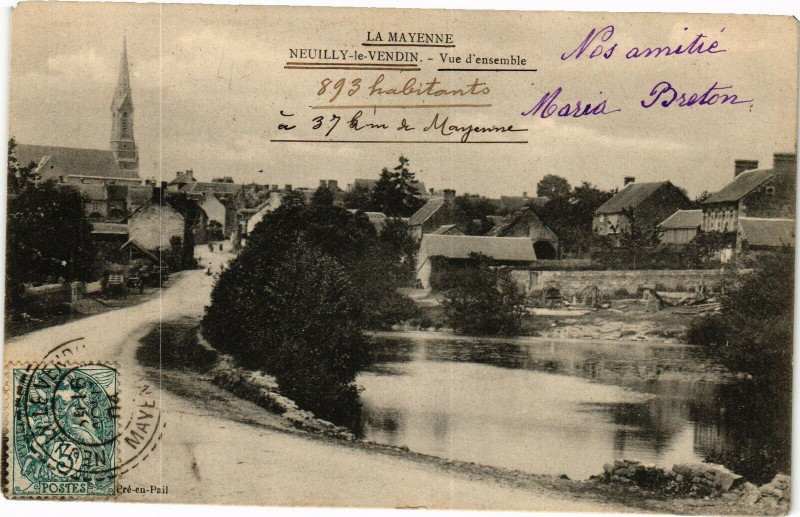 LA MAYENNE
NEUILLY-le-VENDIN. - Vue d'ensemble
893 habitants
à 37 km de Mayenne
Nos amitié
Maria Breton
MAYEN
POSTES
Pré-en-Pail